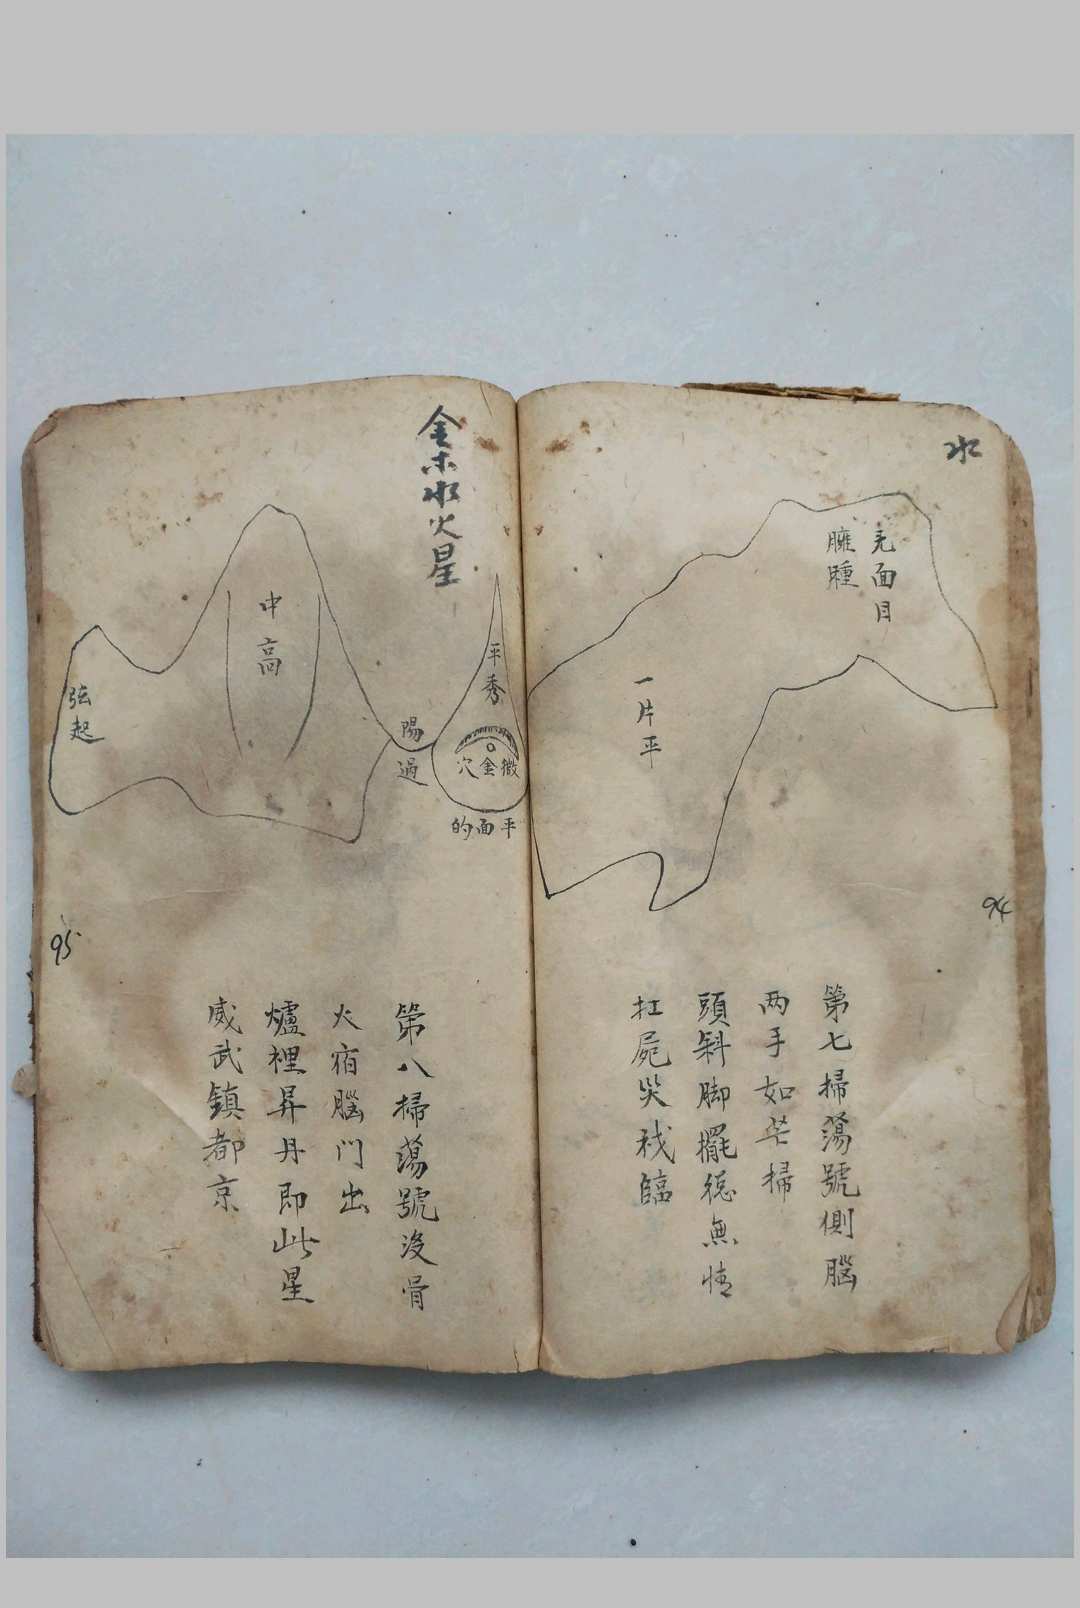 水
无面目
臃腫
一片平
94
第七掃蕩號側腦
两手如芒掃
頭斜脚擺總無情
扛屍哭我臨
金木水火星
平秀
微金穴
平面的
陽過
中高
弦起
95
第八掃蕩號没骨
火宿腦門出
爐裡昇丹即此星
威武鎮都京